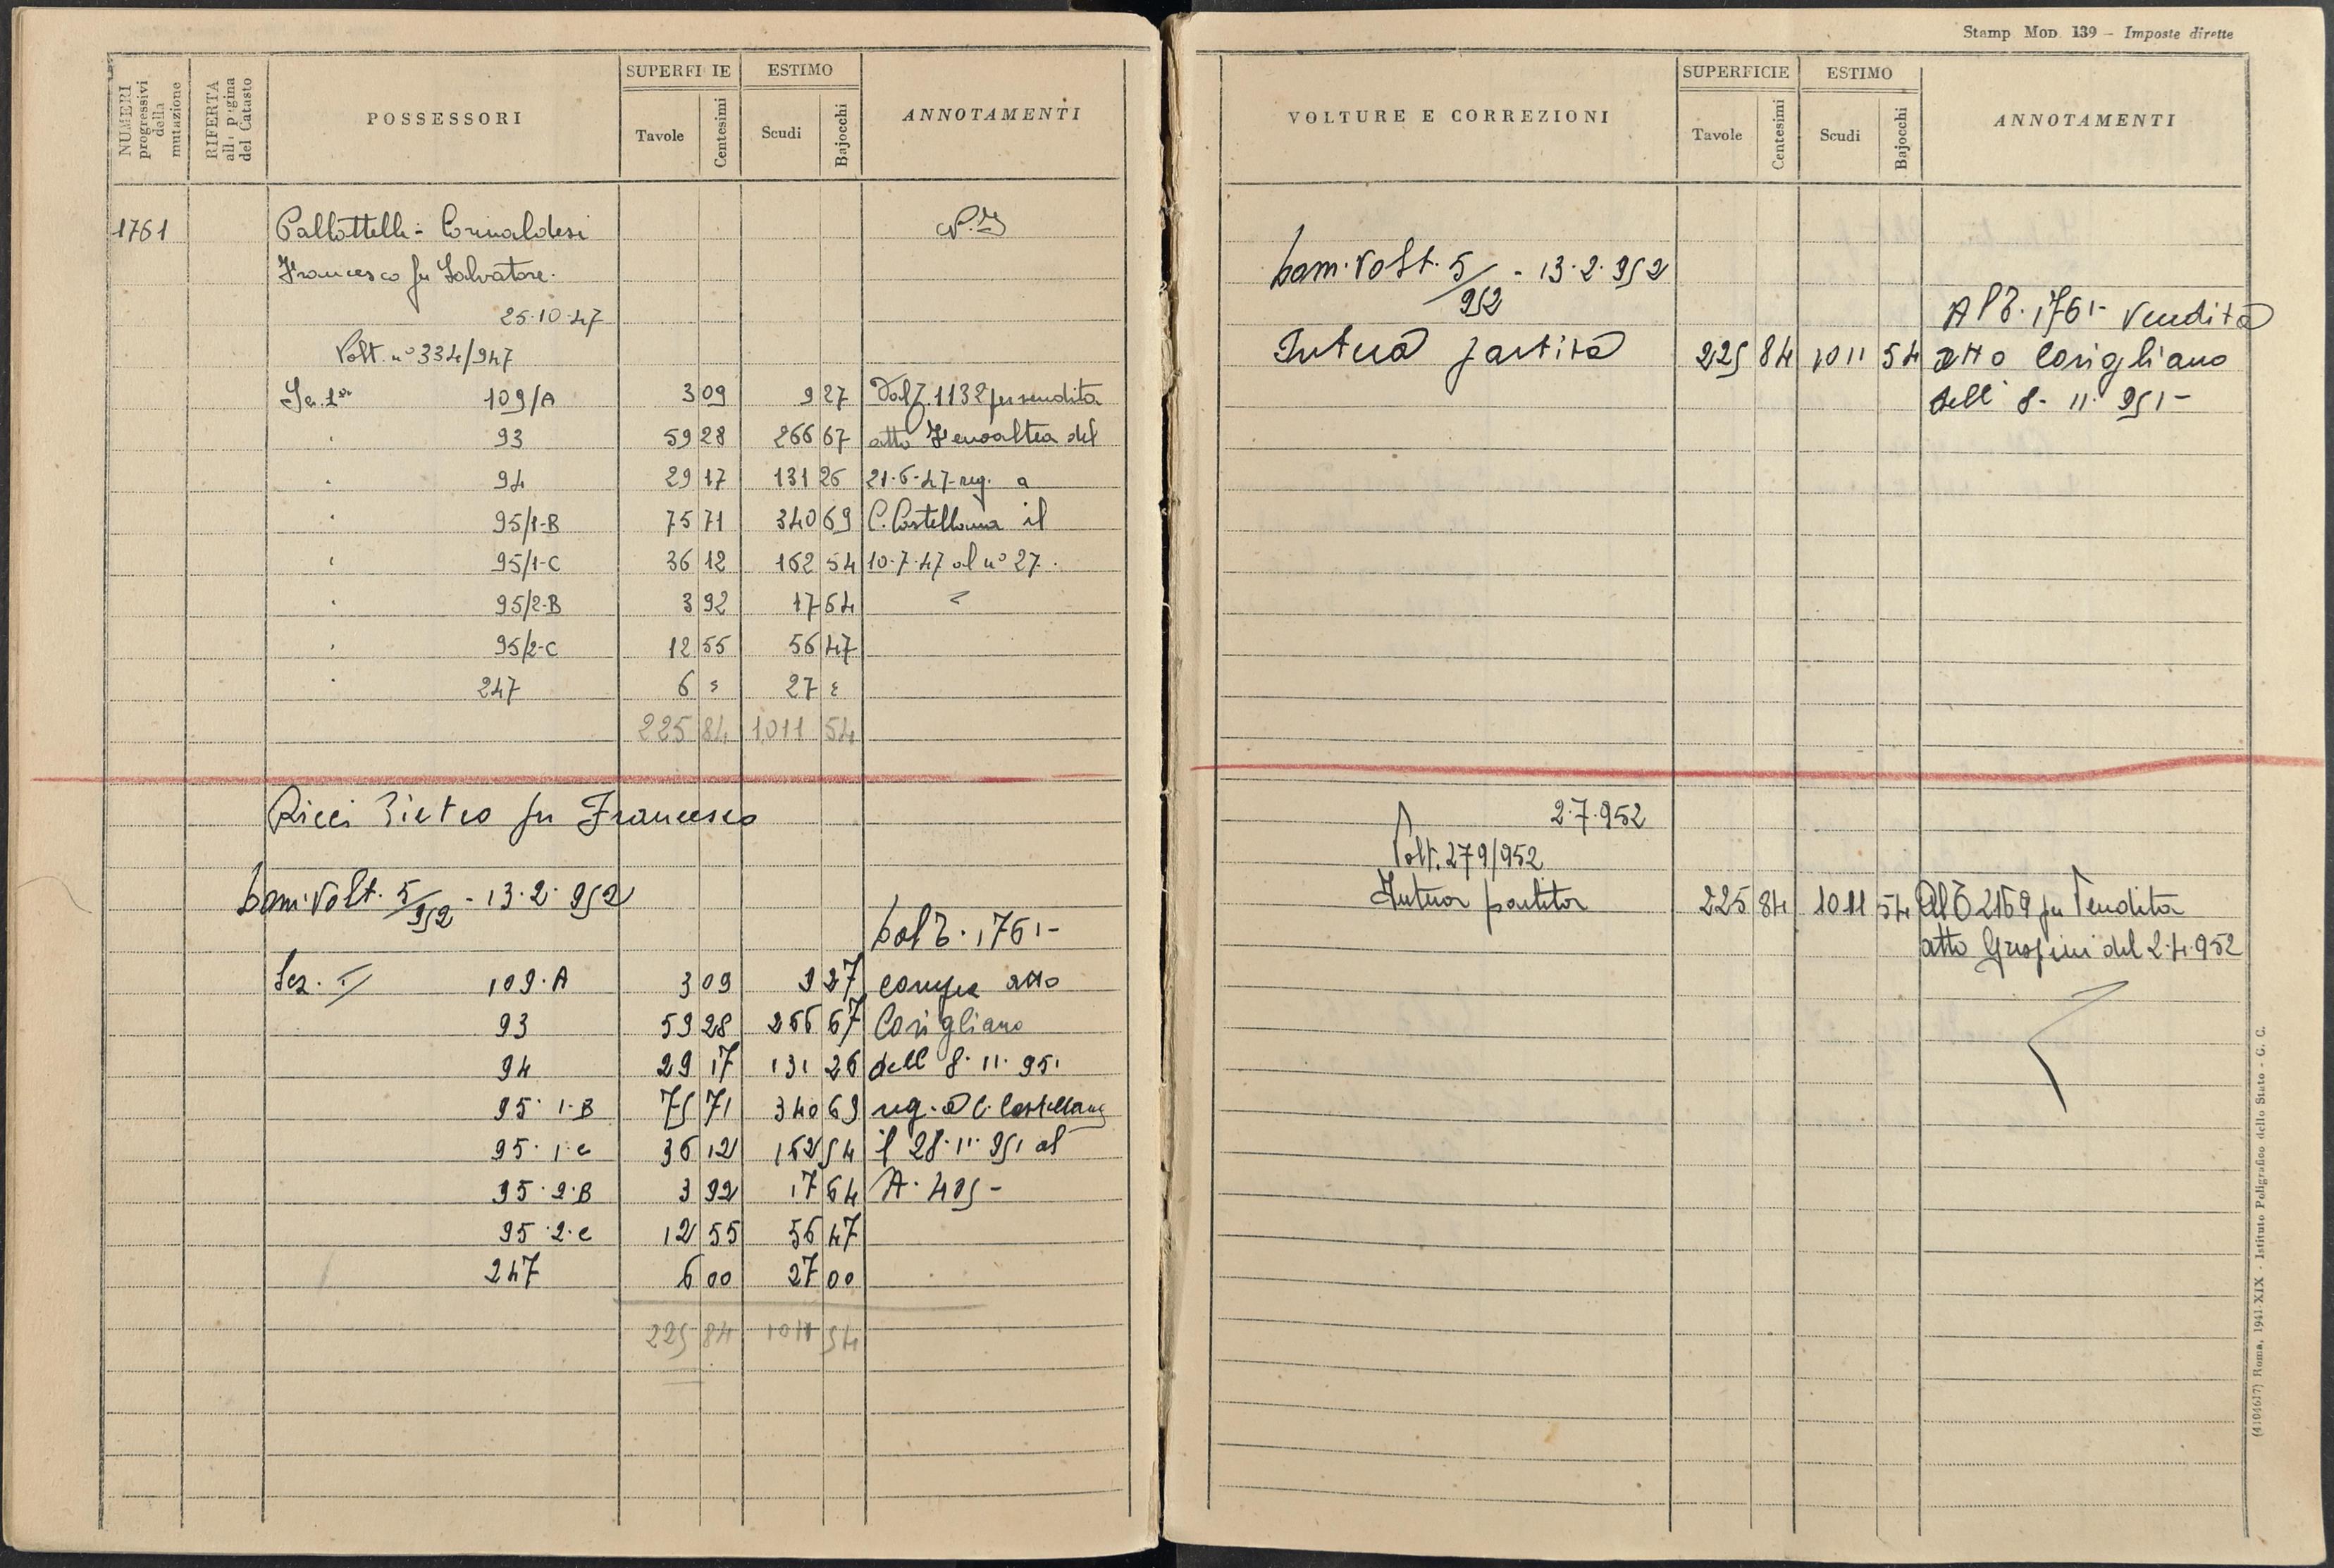 NUMERI progressivi della mutazione
RIFERTA alla pagina del Catasto
POSSESSORI
SUPERFI IE
Tavole
Centesimi
ESTIMO
Scudi
Bajocchi
ANNOTAMENTI
1761 Pallottelli - Corinaldesi
Francesco fu Salvatore.
25-10-47
Volt. n° 334/947
109/A 3 09 9 27 Dal 1132 per vendita
93 59 28 266 67 atto Fenoaltea del
94 29 17 131 26 21-6-47 reg. a
95/1-B 75 71 340 69 C. Castellana il
95/1-C 36 12 162 54 10-7-47 al n° 27.
95/2-B 3 92 17 64
95/2-C 12 55 56 47
247 6 27
225 84 1011 54
Ricci Pietro fu Francesco
Volt. 5/952 - 13.2.952
1761-
Sez. I 109.A 3 09 9 27 compra atto
93 59 28 266 67 Corigliano
94 29 17 131 26 dell 8.11.951
95.1.B 75 71 340 69 reg. a C. Castellana
95.1.c 36 12 162 54 il 28.11.951 al
95.2.B 3 92 17 64 A. 405-
95.2.c 12 55 56 47
247 6 00 27 00
225 84 1011 54
Stamp Mod. 139 - Imposte dirette
VOLTURE E CORREZIONI
SUPERFICIE
Tavole
Centesimi
ESTIMO
Scudi
Bajocchi
ANNOTAMENTI
Volt. 5/952 - 13.2.952
1761- vendita
Intera partita 225 84 1011 54 atto Corigliano
dell 8-11-951-
2.7.952
Volt. 279/952
Intera partita 225 84 1011 54 Al 2169 per Vendita
atto del 2.4.952
(4104617) Roma, 1941-XIX - Istituto Poligrafico dello Stato - G. C.